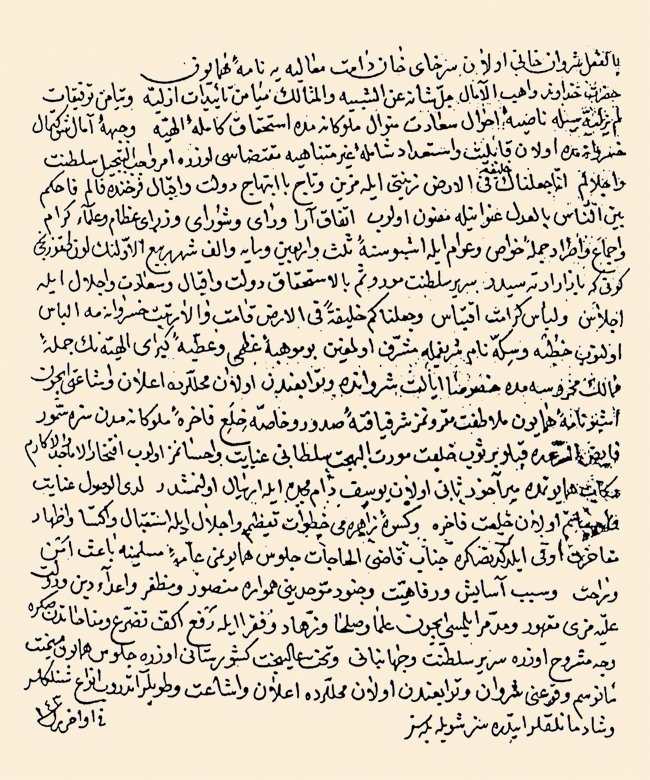 بالفعل شروان خانی اولان سرخای خان دامت معالیه یه نامهٔ همایون
حضرت خداوند واهب الآمال جل شانه عن الشبیه والمثالک میامن تأییدات ازلیه ومیامن توفیقات
لم یزلیه سیله ناصیهٔ احوال سعادت منوال ملوکانه مده استحقاق کاملهٔ الهیه وجبههٔ آمال
خسروانه مده اولان قابلیت واستعداد شاملهٔ غیر متناهیه مقتضاسی اوزره سلطنت
واجلالم انا جعلناک خلیفة فی الارض زینتی ایله مزین وتاج با ابتهاج دولت واقبال فرخنده فالم فاحکم
بین الناس بالعدل عنوانیله معنون اولوب اتفاق آرا وشورای وزرای عظام وعلماء کرام
واجماع جملهٔ خواص وعوام ایله اشبو سنهٔ ثلث واربعین ومایه والف شهر ربیع الاولنک اون طقوزنجی
کونی که بازار ایرته سیدر سریر سلطنت موروثم بالاستحقاق دولت واقبال وسعادت واجلال ایله
اجلاس ولباس کرامت اقتباس وجعلناکم خلیفة فی الارض قامت خسروانه مه الباس
اولنوب خطبه وسکه نام شریفمله مشرف اولمغین بو موهبهٔ عظمی وعطیهٔ کبرای الهیه نک جملهٔ
ممالک محروسه مده خصوصا ایالت شروانده وتوابعندن اولان محللرده اعلان واشاعتی ایچون
اشبو نامهٔ همایون ملاطفت مقرونمز شرفیافتهٔ صدور وخاصه خلع فاخرهٔ ملوکانه مدن سزه سمور
قابلو بر ثوب خلعت مورث البهجت سلطانی عنایت واحسانمز اولوب افتخار الاماجد والاکارم
همایونمده میر آخور ثانی اولان یوسف دام مجده ایله ارسال اولنمشدر لدی الوصول عنایت
اولان خلعت فاخره وکسوهٔ زاهره می خطوات تعظیم واجلال ایله استقبال واکتسا واظهار
مفاخرت ایلدکدنصکره جناب قاضی الحاجات جلوس همایونمی عامهٔ مسلمینه باعث امن
وراحت وسبب آسایش ورفاهیت وجنود موحدینی همواره منصور ومظفر واعداء دین ودولت
علیه مزی مقهور ومدمر ایلمسی ایچون علما وصلحا وزهاد وفقرا ایله رفع اکف تضرع ومناجاتدن صکره
وجه مشروح اوزره سریر سلطنت وجهانبانی وتخت عالیبخت کشورستانی اوزره جلوس همایون میمنت
مأنوسم وقوعنی شروان وتوابعندن اولان محللرده اعلان واشاعت وطوپلر اتدروب انواع شنلکلر
وشادمانلقلر ایتدره سز شویله بیله سز
فی اواخر را ١١٤٣